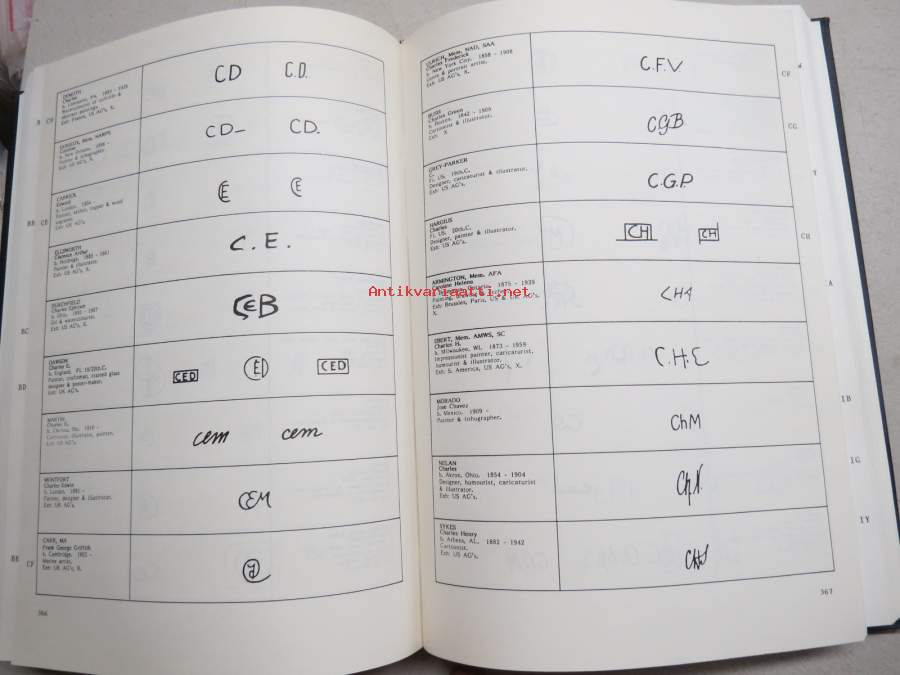 DEMUTH
Charles
b. Lancaster, Pa. 1883 - 1935
Exh: France, US AG's, X.
CD C.D.
B CD
b. New Orleans. 1898 -
Painter & lithographer.
Exh: US AG's, X.
CD- CD.
CARRICK
Edward
b. London. 1904
Painter, etcher, copper & wood
engraver.
Exh: UK AG's.
CE CE
BB CE
ELLSWORTH
Clarence Arthur
b. Holdrege. 1885 - 1961
Painter & illustrator.
Exh: US AG's, X.
C. E.
BURCHFIELD
Charles Ephraim
b. Ohio. 1893 - 1967
Oil & watercolourist.
Exh: US AG's, X.
CEB
BC
DAWSON
Charles E.
b. England. Fl. 19/20th.C.
Painter, craftsman, stained glass
designer & poster-maker.
Exh: UK AG's.
CED CED CED
BD
MARTIN
Charles E.
b. Chelsea, Ma. 1910 -
Cartoonist, illustrator, painter.
Exh: US AG's.
cem cem
MONTFORT
Charles Edwin
b. London.
Painter, designer & illustrator.
Exh: UK AG's.
CEM
CARR, MA
Frank George Griffith
b. Cambridge. 1903 -
Marine artist.
Exh: UK AG's, X.
BE CF
366
ULRICH, Mem. NAD, SAA
Charles Frederick
b. New York City. 1858 - 1908
Genre & portrait artist.
Exh: US AG's, X.
C.F.V.
CF
BUSH
Charles Green
b. Boston. 1842 - 1909
Cartoonist & illustrator.
Exh: X
CGB
CG
GREY-PARKER
C.
Fl. US. 19th.C.
Designer, caricaturist & illustrator.
Exh: US AG's.
C.G.P
Y
HARGIUS
Charles
Fl. US. 20th.C.
Designer, painter & illustrator.
Exh: US AG's.
CH CH
CH
ARMINGTON, Mem. AFA
Caroline Helena
b. Brampton, Ontario. 1875 - 1939
Exh: Brussels, Paris, UK & US AG's,
X.
CHA
A
Antikvariaatti.net
EBERT, Mem. AMWS, SC
Charles H.
b. Milwaukee, Wi. 1873 - 1959
Impressionist painter, caricaturist,
humourist & illustrator.
Exh: S. America, US AG's, X.
C.H.E
MORADO
Jose Chavez
b. Mexico. 1909 -
Painter & lithographer.
ChM
IB
NELAN
Charles
b. Akron, Ohio. 1854 - 1904
Designer, humourist, caricaturist
& illustrator.
Exh: US AG's.
ChN.
IG
SYKES
Charles Henry
b. Athens, AL. 1882 - 1942
Cartoonist.
Exh: US AG's.
CHS
IY
367